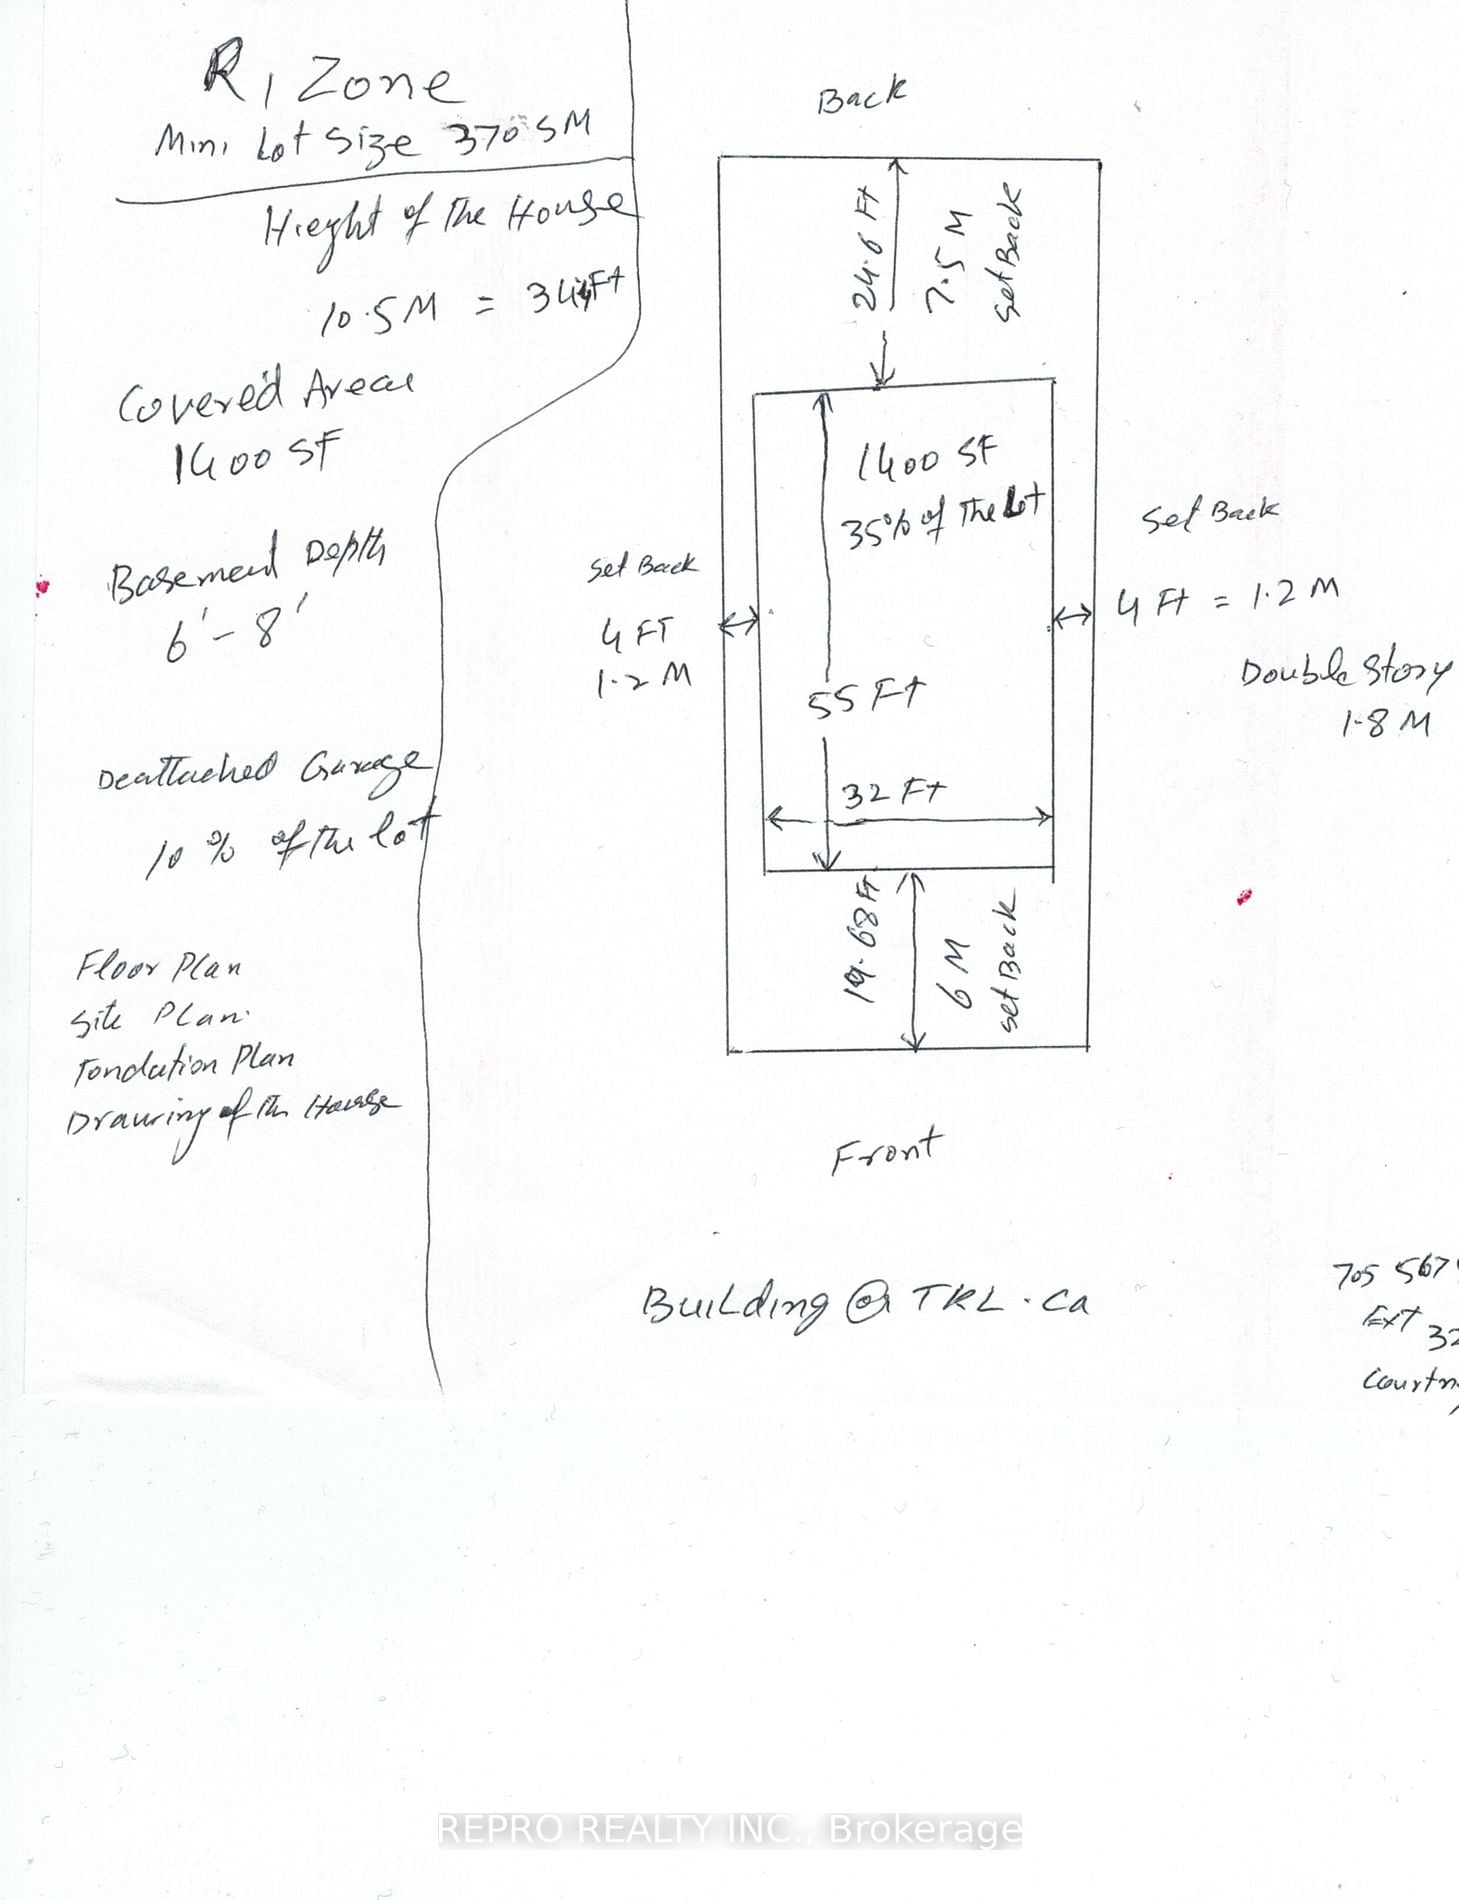 R1 Zone
Mini Lot Size 370 SM
Hieght of The House
10.5 M = 34 Ft
Covered Area
1400 SF
Basement Depth
6' - 8'
Deattached Garage
10 % of the lot
Floor Plan
Site Plan.
Fondation Plan
Drawing of the House
Back
24.6 Ft
7.5 M
Set Back
1400 SF
35% of The Lot
Set Back
4 FT
1.2 M
55 Ft
32 Ft
Set Back
4 Ft = 1.2 M
Double Story
1.8 M
19.68 Ft
6 M
Set Back
Front
Building @ TKL.Ca
705 567
Ext 32
REPRO REALTY INC., Brokerage